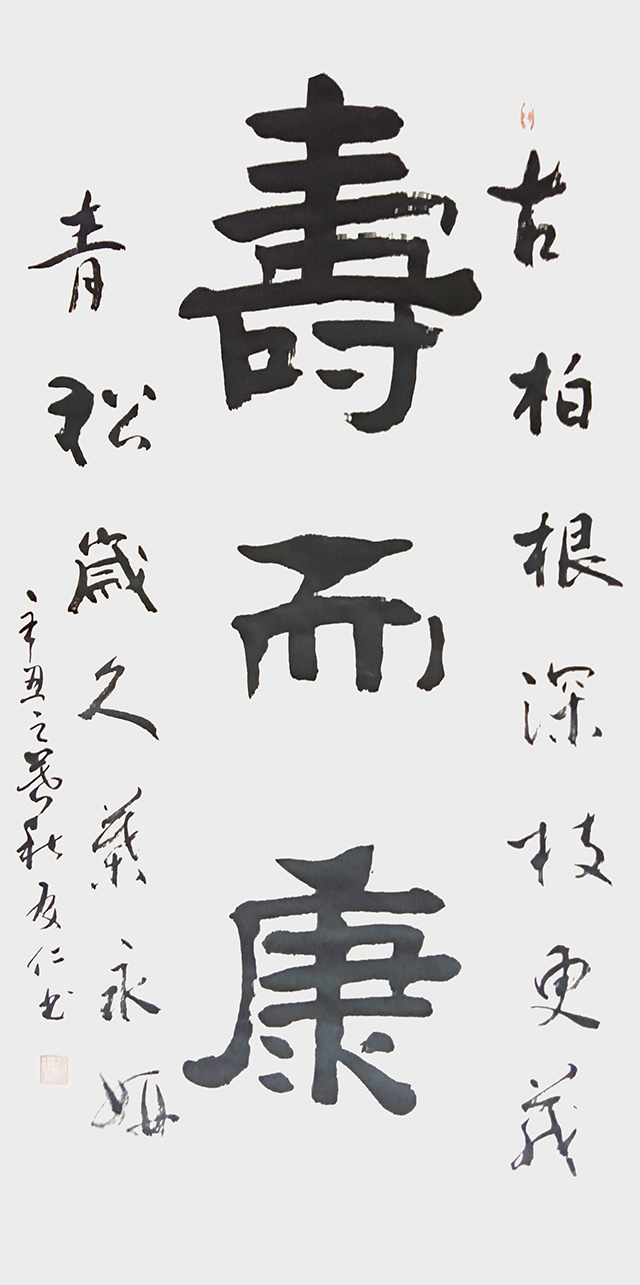 古柏根深枝更茂
壽而康
青松歲久葉永妍
辛丑之暮秋友仁书